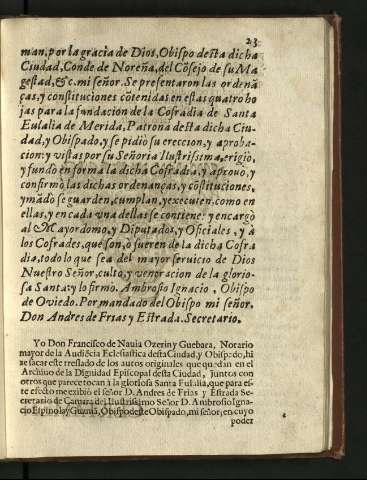 23
man, por la gracia de Dios, Obispo desta dicha
Ciudad, Conde de Noreña, del Cõsejo de su Ma
gestad, &c. mi señor. Se presentaron las ordenã
ças, y constituciones cõtenidas en estas quatro ho
jas para la fundacion de la Cofradia de Santa
Eulalia de Merida, Patrona desta dicha Ciu-
dad, y Obispado, y se pidiò su ereccion, y aproba-
cion: y vistas por su Señoria Ilustrissima, erigiò,
y fundò en forma la dicha Cofradia, y aprouò, y
confirmò las dichas ordenanças, y cõstituciones,
y mãdò se guarden, cumplan, y executen, como en
ellas, y en cada vna dellas se contiene: y encargò
al Mayordomo, y Diputados, y Oficiales, y à
los Cofrades, que son, ò fueren de la dicha Cofra
dia, todo lo que sea del mayor seruicio de Dios
Nuestro Señor, culto, y veneracion de la glorio-
sa Santa y lo firmò. Ambrosio Ignacio, Obispo
de Oviedo. Por mandado del Obispo mi señor.
Don Andres de Frias y Estrada. Secretario.
Yo Don Francisco de Nauia Ozerin y Guebara, Notario
mayor de la Audiẽcia Eclesiastica desta Ciudad, y Obispado, hi
ze sacar este treslado de los autos originales que quedan en el
Archiuo de la Dignidad Episcopal desta Ciudad, juntos con
otros que parece tocan à la gloriosa Santa Eulalia, que para es-
te efecto me exibiò el señor D. Andres de Frias y Estrada Se-
cretario de Camara del Ilustrissimo Señor D. Ambrosio Igna-
cio Espinola y Guzmã, Obispo deste Obispado, mi señor, en cuyo
poder